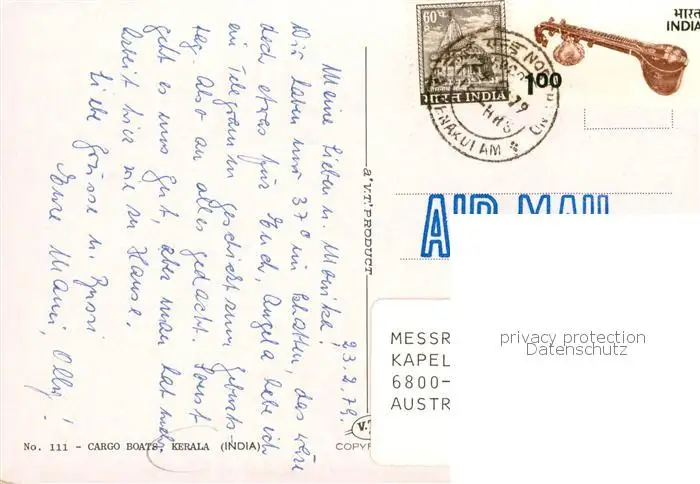 23.2.79
Meine Lieben u. Monika!
Wir haben nur 37C im Schatten, das wäre
doch etwas für Euch, Angela habe ich
ein Telegramm geschickt zum Geburts-
tag. Also an alles gedacht. Sonst
geht es uns gut, aber man hat mehr
Arbeit hier wie zu Hause.
Liebe Grüsse u. Bussi
Eure Mami, Olly!
No. 111 - CARGO BOATS, KERALA (INDIA)
a "V.T." PRODUCT
V.T.
COPYR
60
भारत INDIA
भारत
INDIA
1.00
79
AIR MAIL
MESSR
KAPEL
6800-
AUSTR
privacy protection
Datenschutz